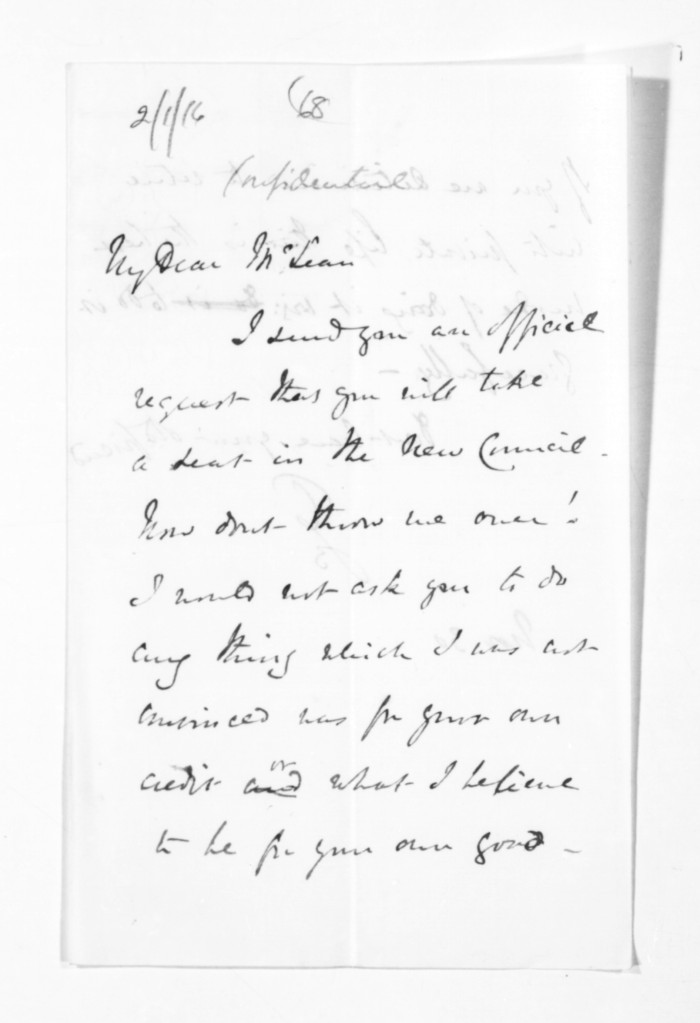 2/1/16
68
Confidential
My Dear McLean
I send you an official
request that you will take
a seat in the New Council.
Now don't throw me over!
I would not ask you to do
any thing which I was not
convinced was for your own
credit and or what I believe
to be for your own good -